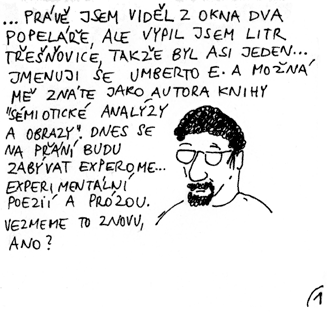 ... PRÁVĚ JSEM VIDĚL Z OKNA DVA
POPELÁŘE, ALE VYPIL JSEM LITR
TŘEŠŇOVICE, TAKŽE BYL ASI JEDEN...
JMENUJI SE UMBERTO E. A MOŽNÁ
MĚ ZNÁTE JAKO AUTORA KNIHY
"SÉMIOTICKÉ ANALÝZY
A OBRAZY". DNES SE
NA PŘÁNÍ BUDU
ZABÝVAT EXPEROME...
EXPERIMENTÁLNÍ
POEZIÍ A PRÓZOU.
VEZMEME TO ZNOVU,
ANO?
1